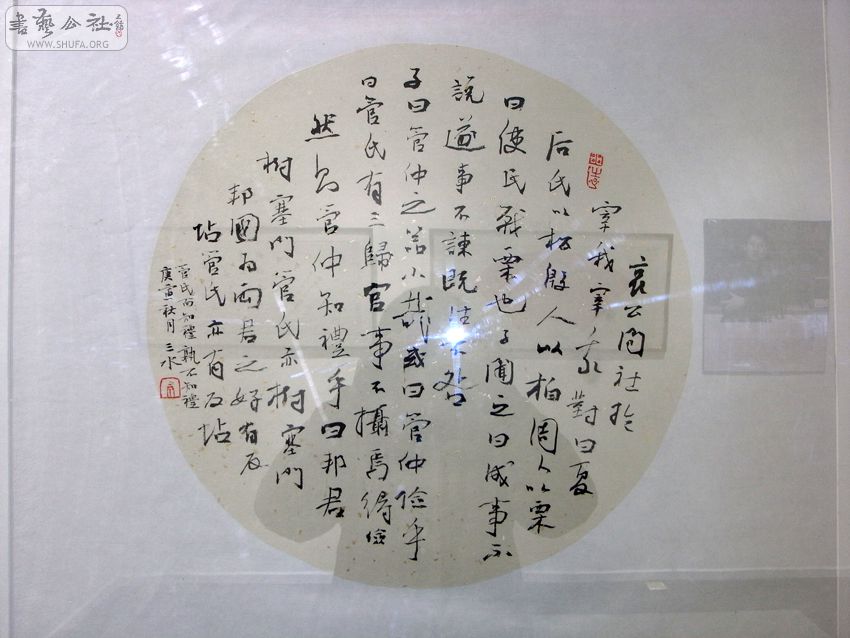 書藝公社
WWW.SHUFA.ORG
哀公問社於
宰我宰我對曰夏
后氏以松殷人以柏周人以栗
曰使民戰栗也子聞之曰成事不
說遂事不諫既往不咎
子曰管仲之器小哉或曰管仲儉乎
曰管氏有三歸官事不攝焉得儉
然則管仲知禮乎曰邦君
樹塞門管氏亦樹塞門
邦國為兩君之好有反
坫管氏亦有反坫
管氏而知禮孰不知禮
庚寅秋月三水